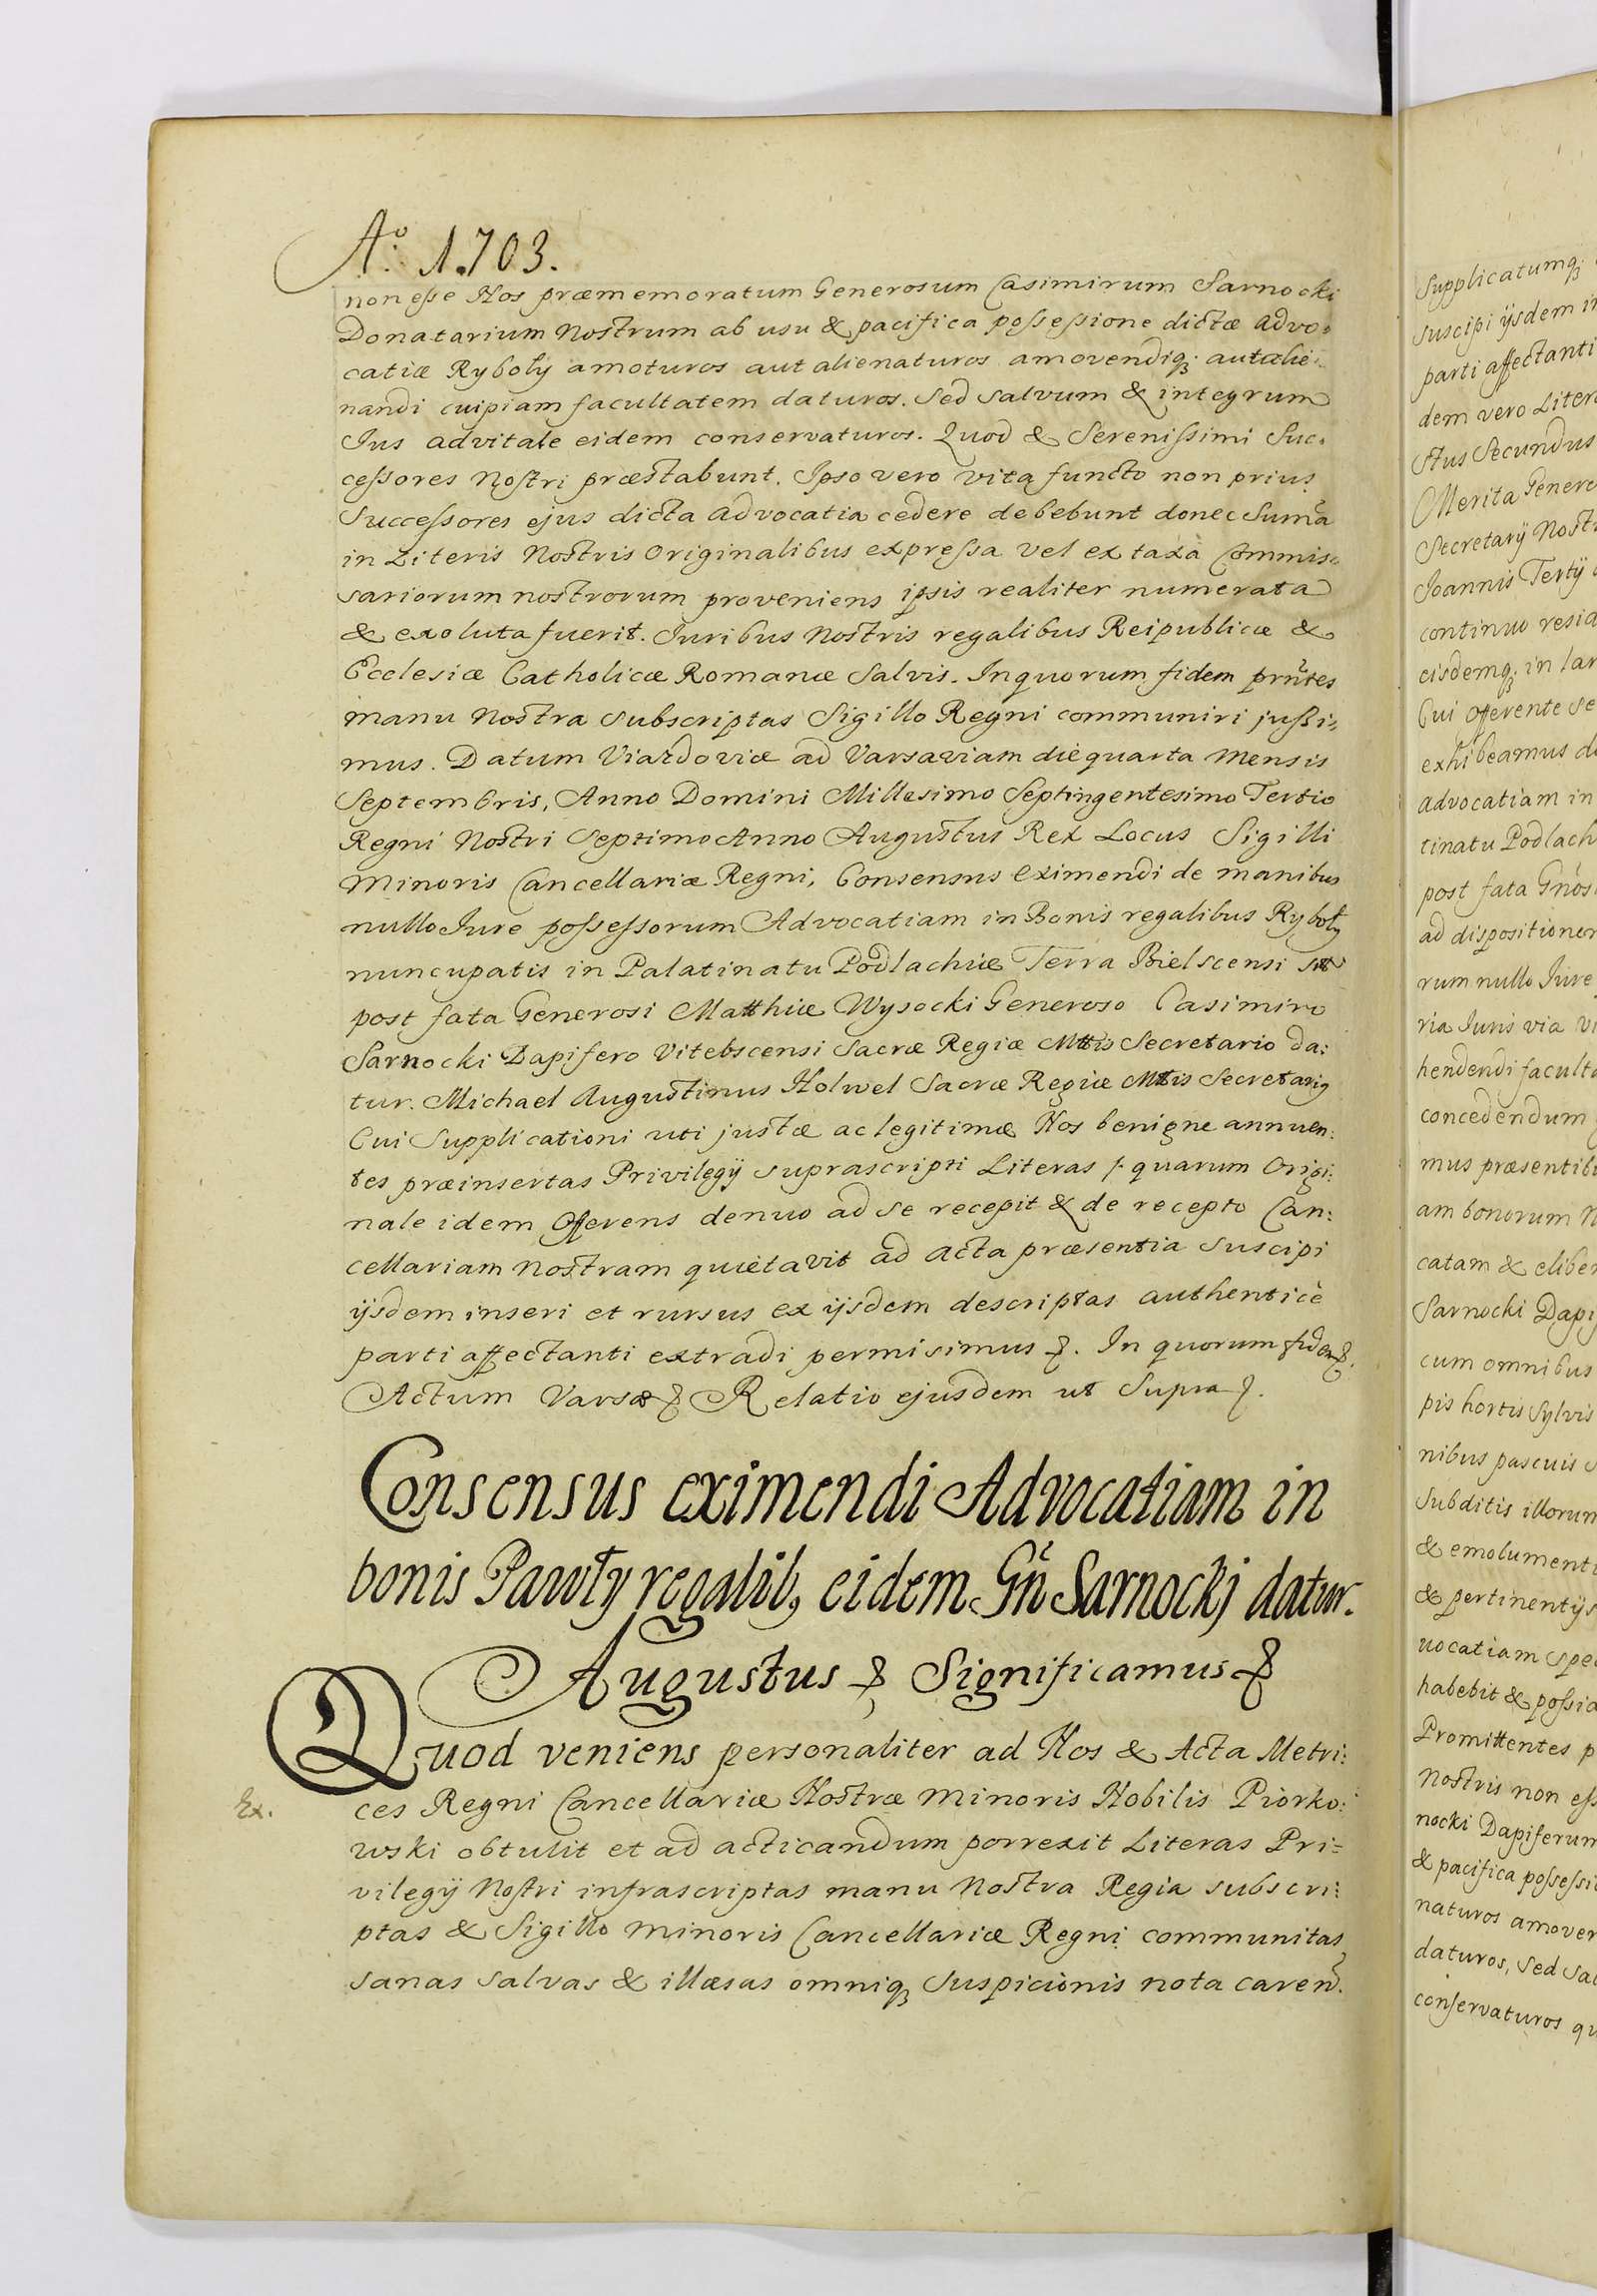 Aº 1.703.
non esse Nos præmemoratum Generosum Casimirum Sarnocki
Donatarium Nostrum ab usu & pacifica possessione dictæ advo-
catiæ Ryboły amoturos aut alienaturos amovendiq; aut alie-
nandi cuipiam facultatem daturos. Sed salvum & integrum
Ius advitale eidem conservaturos. Quod & Serenissimi Suc-
cessores Nostri præstabunt. Ipso vero vita functo non prius
Successores ejus dicta advocatia cedere debebunt donec Suma
in Literis Nostris Originalibus expressa vel ex taxa Commis-
sariorum nostrorum proveniens ipsis realiter numerata
& exoluta fuerit. Iuribus Nostris regalibus Reipublicæ &
Ecclesiæ Catholicæ Romanæ salvis. In quorum fidem prntes
manu Nostra subscriptas Sigillo Regni communiri jussi-
mus. Datum Viazdoviæ ad Varsaviam die quarta Mensis
Septembris, Anno Domini Millesimo Septingentesimo Tertio
Regni Nostri Septimo Anno Augustus Rex Locus Sigilli
Minoris Cancellariæ Regni, Consensus eximendi de manibus
nullo Iure possessorum Advocatiam in Bonis regalibus Ryboły
nuncupatis in Palatinatu Podlachiæ Terra Bielscensi
post fata Generosi Matthiæ Wysocki Generoso Casimiro
Sarnocki Dapifero Vitebscensi Sacræ Regiæ Mttis Secretario da:
tur. Michael Augustinus Holwel Sacræ Regiæ Mttis Secretarig
Cui Supplicationi uti justæ ac legitimæ Nos benigne annuen:
tes præinsertas Privilegij suprascripti Literas /: quarum Origi:
nale idem Offerens denuo ad se recepit & de recepto Can:
cellariam nostram quietavit ad acta præsentia suscipi
ijsdem inseri et rursus ex ijsdem descriptas authenticè
parti affectanti extradi permisimus &. In quorum fidem &.
Actum Varsæ & Relatio ejusdem ut supra &.
Consensus eximendi Advocatiam in
bonis Pawły regalib, eidem Gn Sarnockj datur.
Augustus & Significamus &
Quod veniens personaliter ad Nos & Acta Metri:
Ex.
ces Regni Cancellariæ Nostræ Minoris Nobilis Piorko:
wski obtulit et ad acticandum porrexit Literas Pri=
vilegij Nostri infrascriptas manu Nostra Regia subscri:
ptas & Sigillo Minoris Cancellariæ Regni communitas
sanas salvas & illæsas omniq; suspicionis nota caren.
Supplicatumq;
suscipi ijsdem in
parti affectanti
dem vero Liter
stus Secundus
Merita Genero
Secretarij Nostr
Joannis Tertij
continuo resid
eisdemq; in lar
Cui Offerente se
exhibeamus
advocatiam in
tinatu Podlach
post fata Gnos
ad dispositionem
rum nullo Iure
ria Iuris via vi
hendendi faculta
concedendum
mus præsentibu
am bonorum N
catam & eliber
Sarnocki Dapi
cum omnibus
pis hortis sylvis
nibus pascuis
subditis illorum
& emolument
& pertinentijs
vocatiam spe
habebit & possid
Promittentes p
Nostris non ess
nocki Dapiferum
& pacifica possessi
naturos amoven
daturos, sed sal
conservaturos qu